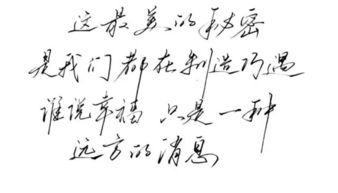 这最美的秘密
是我们都在制造巧遇
谁说幸福 只是一种
远方的消息